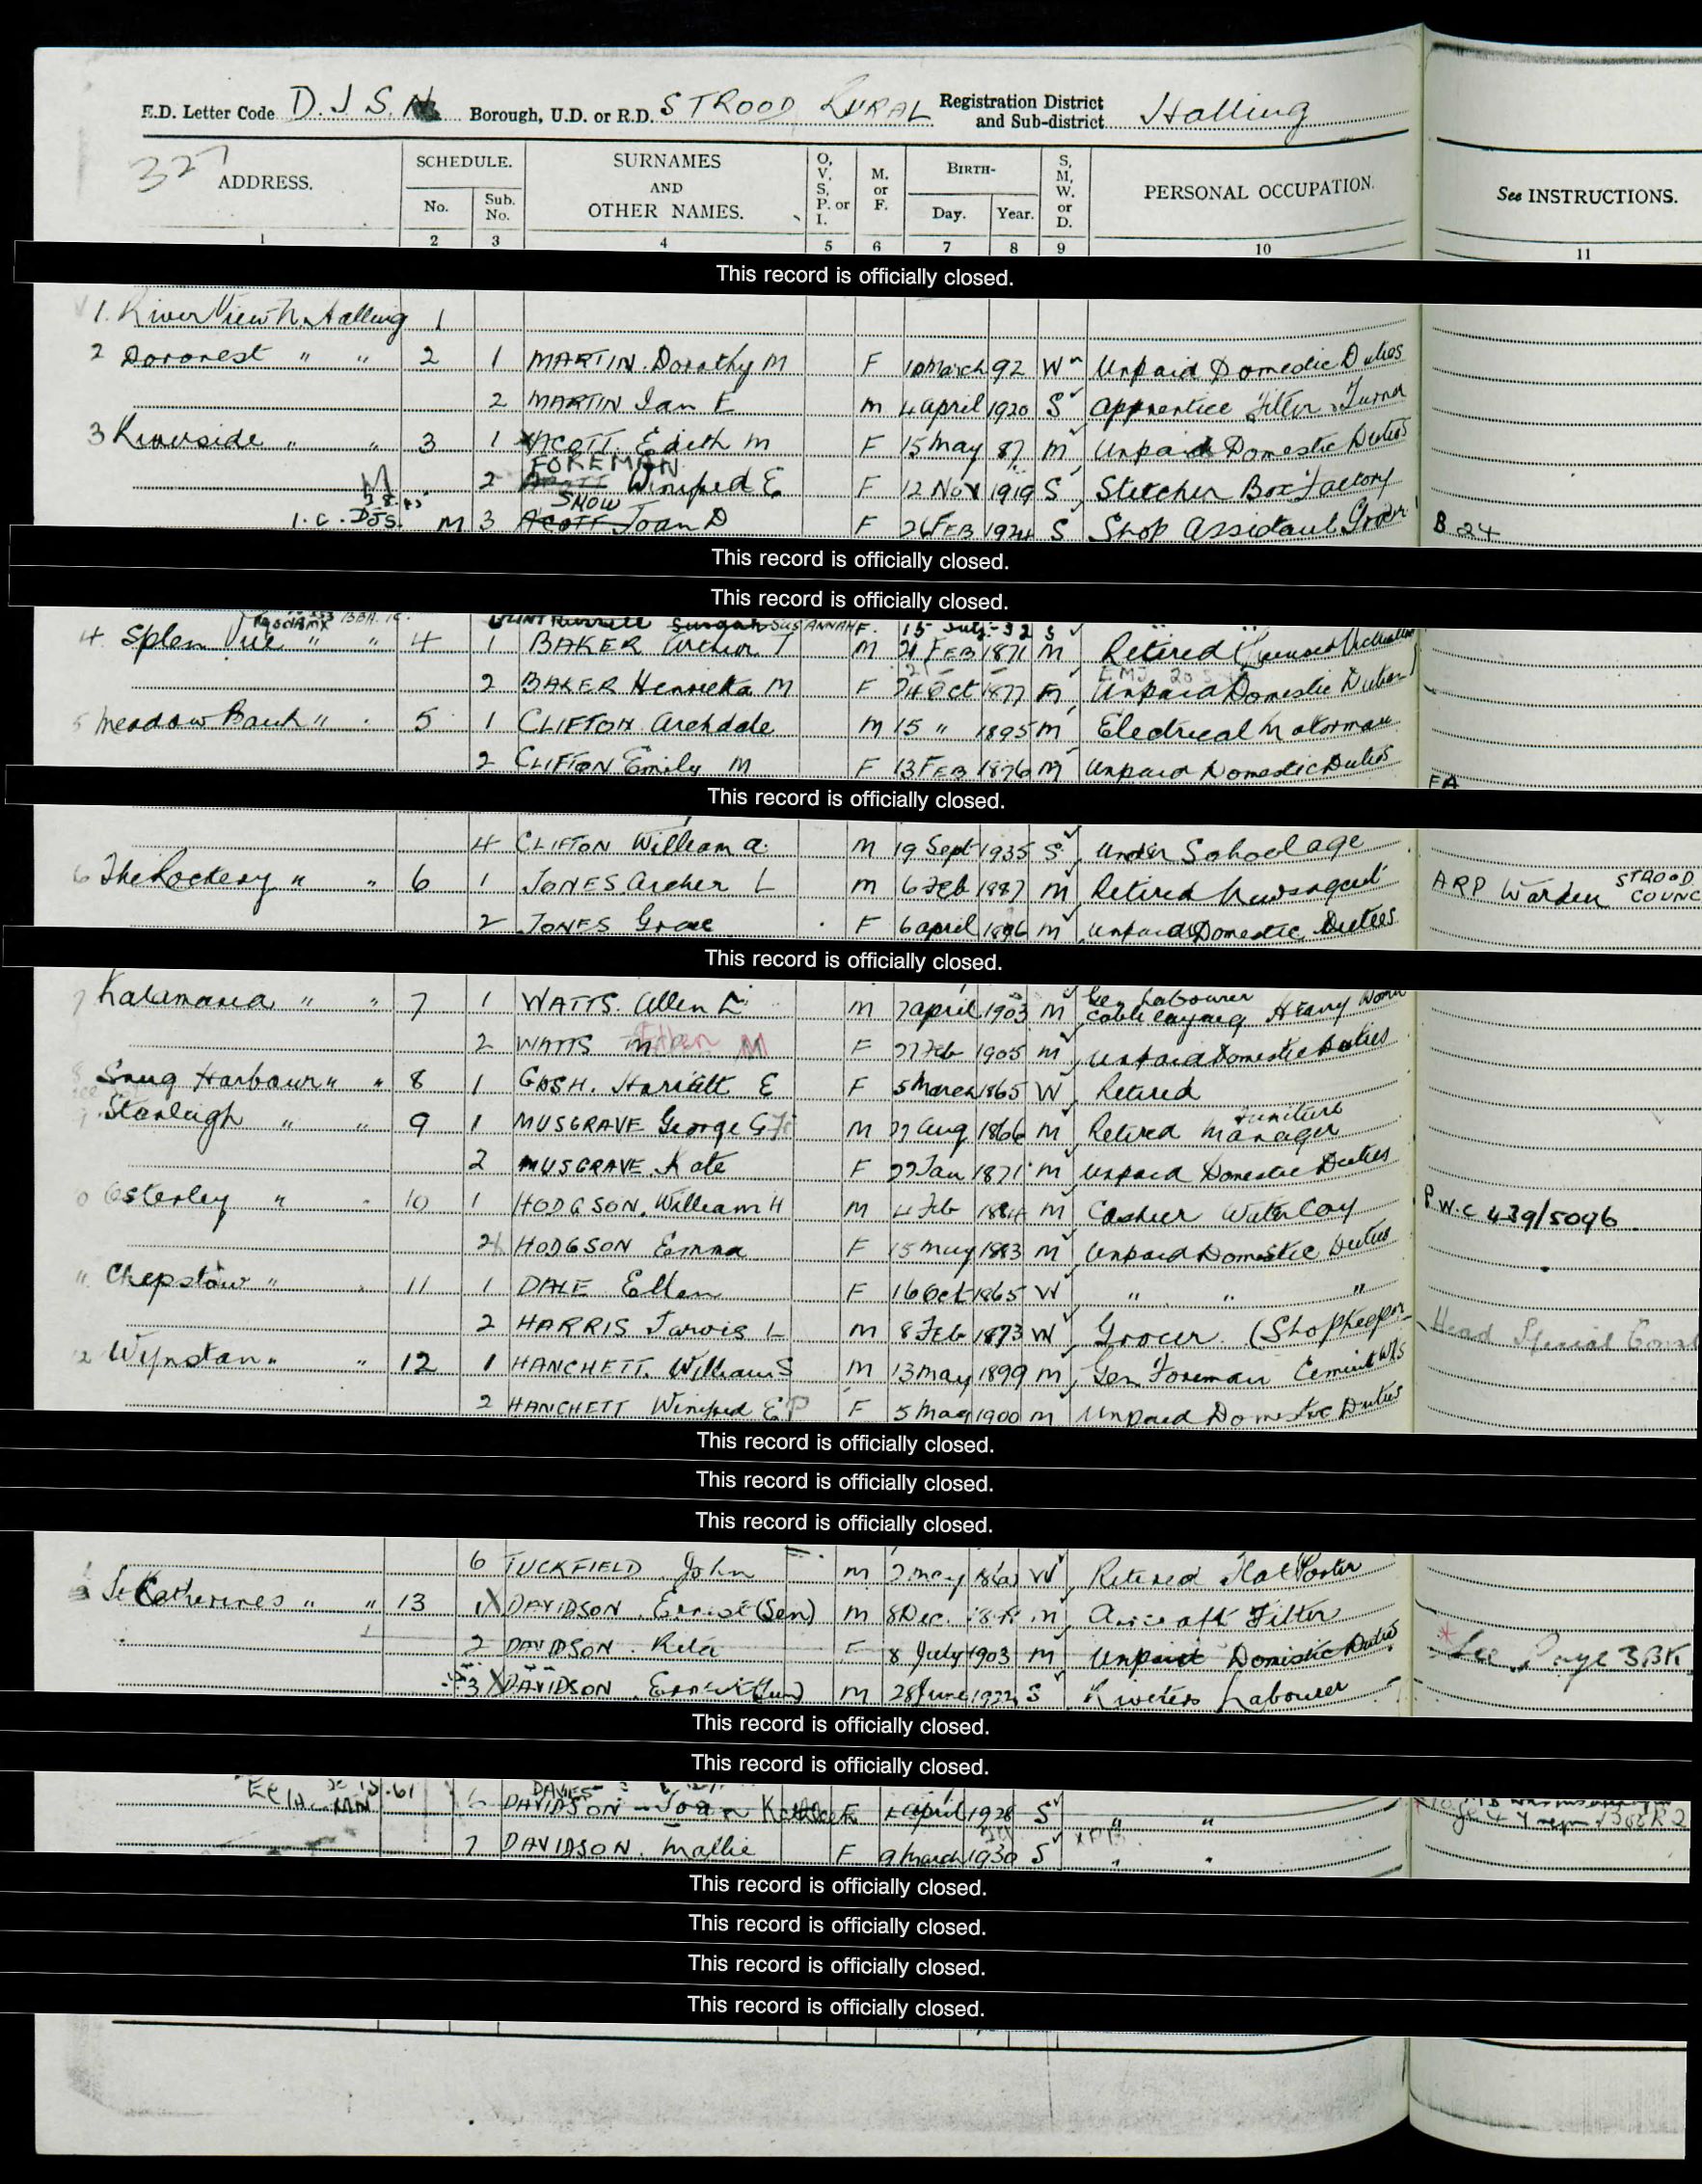 E.D. Letter Code D.J.S.N Borough, U.D. or R.D. STROOD RURAL Registration District and Sub-district Halling
327
ADDRESS. SCHEDULE. No. Sub. No. SURNAMES AND OTHER NAMES. O, V, S, P. or I. M. or F. BIRTH- Day. Year. S, M, W. or D. PERSONAL OCCUPATION. See INSTRUCTIONS.
1 2 3 4 5 6 7 8 9 10 11
This record is officially closed.
1. River View N. Halling 1
2 Doronest " " 2 1 MARTIN. Dorothy M F 10 March 92 W Unpaid Domestic Duties
2 MARTIN Ian E M 4 April 1920 S Apprentice Fitter Turner
3 Riverside " " 3 1 ACOTT. Edith M F 15 May 87 M Unpaid Domestic Duties
FOREMAN
2 Winifred E F 12 Nov 1919 S Stitcher Box Factory
SNOW
M 3 ACOTT Joan D F 26 FEB 1924 S Shop Assistant Grocer B.24
This record is officially closed.
This record is officially closed.
SUSANNAH F. 15 July 32 S
4. Splen Vue " " 4 1 BAKER Archior T M 21 FEB 1871 M Retired Licensed Victualler
2 BAKER Henrietta M F 24 Oct 1877 M Unpaid Domestic Duties
5 Meadow Bank " . 5 1 CLIFTON Archdale M 15 " 1895 M Electrical Motorman
2 CLIFTON Emily M F 13 FEB 1896 M Unpaid Domestic Duties
FA
This record is officially closed.
4 CLIFTON William A. M 19 Sept 1935 S Under School age
6 The Rockery " " 6 1 JONES Archer L M 6 Feb 1887 M Retired Newsagent ARP Warden STROOD COUNC
2 JONES Grace F 6 April 1896 M Unpaid Domestic Duties
This record is officially closed.
7 Kalamaria " " 7 1 WATTS. Allen L M 7 April 1903 M Ge Labourer Cable laying Heavy Worker
2 WATTS M F 27 Feb 1905 M Unpaid Domestic Duties
8 Snug Harbour " " 8 1 GOSH. Harriett E F 5 March 1865 W Retired
Starleigh " " 9 1 MUSGRAVE George G M 27 Aug 1866 M Retired Furniture Manager
2 MUSGRAVE Kate F 22 Jan 1871 M Unpaid Domestic Duties
0 Osterley " . 10 1 HODGSON. William H M 4 Feb 1884 M Cashier Water Coy P.W.C 439/5096
2 HODGSON Emma F 15 May 1883 M Unpaid Domestic Duties
11 Chepstow " . 11 1 DALE Ellen F 16 Oct 1865 W " " "
2 HARRIS Jarvis L M 8 Feb 1873 W Grocer (Shopkeeper Head Special Const
12 Wynstan " " 12 1 HANCHETT. William S M 13 May 1899 M Gen Foreman Cement Wks
2 HANCHETT Winifred E P F 5 May 1900 M Unpaid Domestic Duties
This record is officially closed.
This record is officially closed.
This record is officially closed.
6 TUCKFIELD John M 2 May W Retired Flat Porter
St Catherines " " 13 1 X DAVIDSON. Ernest (Sen) M 8 Dec. M Aircraft Fitter
2 DAVIDSON. Rita F 8 July 1903 M Unpaid Domestic Duties See Page 3.BK
3 X DAVIDSON Ernest (Jun) M 28 June 1922 S Riveters Labourer
This record is officially closed.
This record is officially closed.
DAVIES
6 DAVIDSON Joan F April 1928 S " "
7 DAVIDSON. Mallie F 9 March 1930 S " "
This record is officially closed.
This record is officially closed.
This record is officially closed.
This record is officially closed.